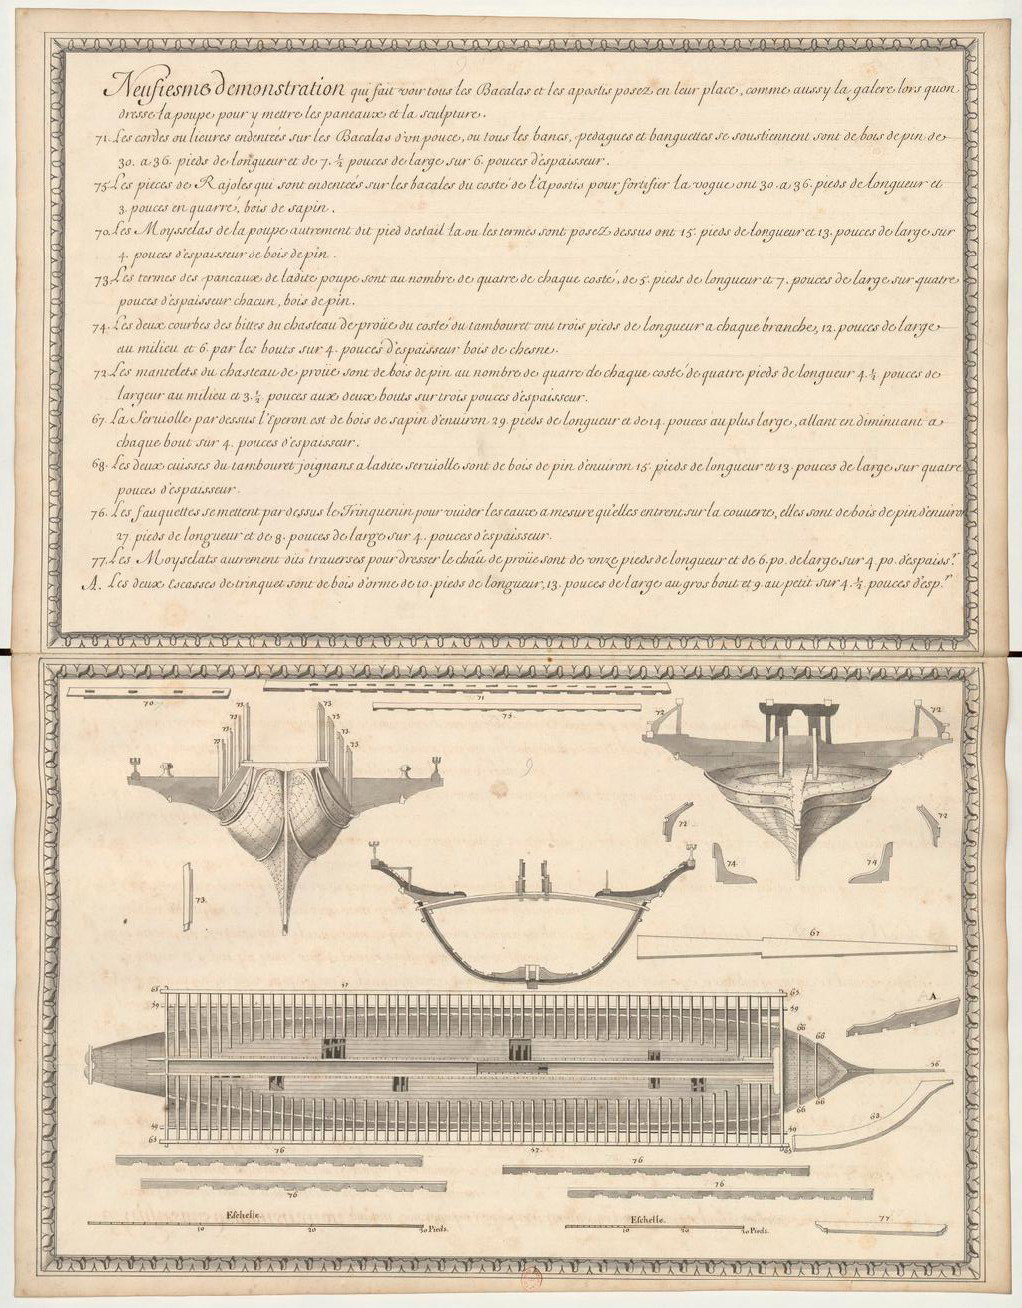 Neufiesme demonstration qui fait voir tous les Bacalas et les apostis posez en leur place, comme aussy la galere lors quon
dresse la poupe pour y mettre les paneaux et la sculpture.
71. Les cordes ou lieures endentées sur les Bacalas d'vn pouce, ou tous les bancs, pedagues et banquettes se soustiennent sont de bois de pin de
30. a 36. pieds de longueur et de 7. ½ pouces de large sur 6. pouces d'espaisseur.
75. Les pieces de Rajoles qui sont endentées sur les bacales du costé de l'Apostis pour fortifier la vogue ont 30. a 36. pieds de longueur et
3. pouces en quarré, bois de sapin.
70. Les Moysselas de la poupe autrement dit pied destail la ou les termes sont posez dessus ont 15. pieds de longueur et 13. pouces de large sur
4. pouces d'espaisseur de bois de pin.
73. Les termes des paneaux de ladite poupe sont au nombre de quatre de chaque costé, de 5. pieds de longueur et 7. pouces de large sur quatre
pouces d'espaisseur chacun, bois de pin.
74. Les deux courbes des bittes du chasteau de proüe du costé du tambouret ont trois pieds de longueur a chaque branche, 12. pouces de large
au milieu et 6. par les bouts sur 4. pouces d'espaisseur bois de chesne.
72. Les mantelets du chasteau de proüe sont de bois de pin au nombre de quatre de chaque costé de quatre pieds de longueur 4. ½ pouces de
largeur au milieu et 3. ½ pouces aux deux bouts sur trois pouces d'espaisseur.
67. La Seruiolle par dessus l'Eperon est de bois de sapin d'enuiron 29. pieds de longueur et de 14. pouces au plus large, allant en diminuant a
chaque bout sur 4. pouces d'espaisseur.
68. Les deux cuisses du tambouret joignans a ladite seruiolle sont de bois de pin d'enuiron 15. pieds de longueur et 13. pouces de large sur quatre
pouces d'espaisseur.
76. Les fauquettes se mettent par dessus le Trinquenin pour vuider les eaux a mesure qu'elles entrent sur la couuerte, elles sont de bois de pin d'enuiron
27. pieds de longueur et de 8. pouces de large sur 4. pouces d'espaisseur.
77. Les Moyselats autrement dits trauerses pour dresser le chau de proüe sont de vnze pieds de longueur et de 6. po. de large sur 4. po. d'espaiss.r
A. Les deux Escasses de trinquet sont de bois d'orme de 10. pieds de longueur, 13. pouces de large au gros bout et 9. au petit sur 4. ½ pouces d'esp.r
70.
71
75.
73.
73.
73.
73.
73.
73.
72
72
72
72
74
74
73.
67
65
57
65
59
59
66
66
A
56
68
66
66
59
65
59
65
76
57.
76
76
76
77
Eschelle.
10
20
30 Pieds.
Eschelle.
10
20
30 Pieds.